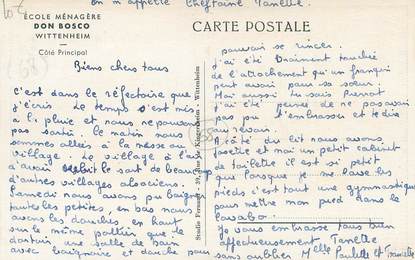 on m'appelle Cheftaine Tanette.
ÉCOLE MÉNAGÈRE
DON BOSCO
WITTENHEIM
Côté Principal
CARTE POSTALE
Biens chers tous
C'est dans le réfectoire que
j'écris. Le temps s'est mis
à la pluie et nous ne pouvons
pas sortir. Le matin nous
sommes allées à la messe au
village. Le village à l'air
d'avoir le sort de beaucoup
d'autres villages alsaciens.
Samedi nous avons pu baigner
toutes les petites, en bas nous
avons les douches, en haut
sur le même pallier que le
dortoir, une salle de bain
avec baignoire et douche pour
Studio Fernand - 39, rue de Kingersheim - Wittenheim
pouvais se rincer.
J'ai été vraiment touchée
de l'attachement qu'un frangin
peut avoir pour sa soeur.
Moi aussi tu sais Pierrot
j'ai été peinée de ne pas avoir
pu t'embrasser et te dire
au revoir.
A côté du lit nous avons
et moi un petit cabinet
de toilette il est si petit
que lorsque je me lave les
pieds c'est tout une gymnastique
pour mettre mon pied dans le
lavabo.
Je vous embrasse tous bien
affectueusement Tanette
sans oublier Melle Paulette et